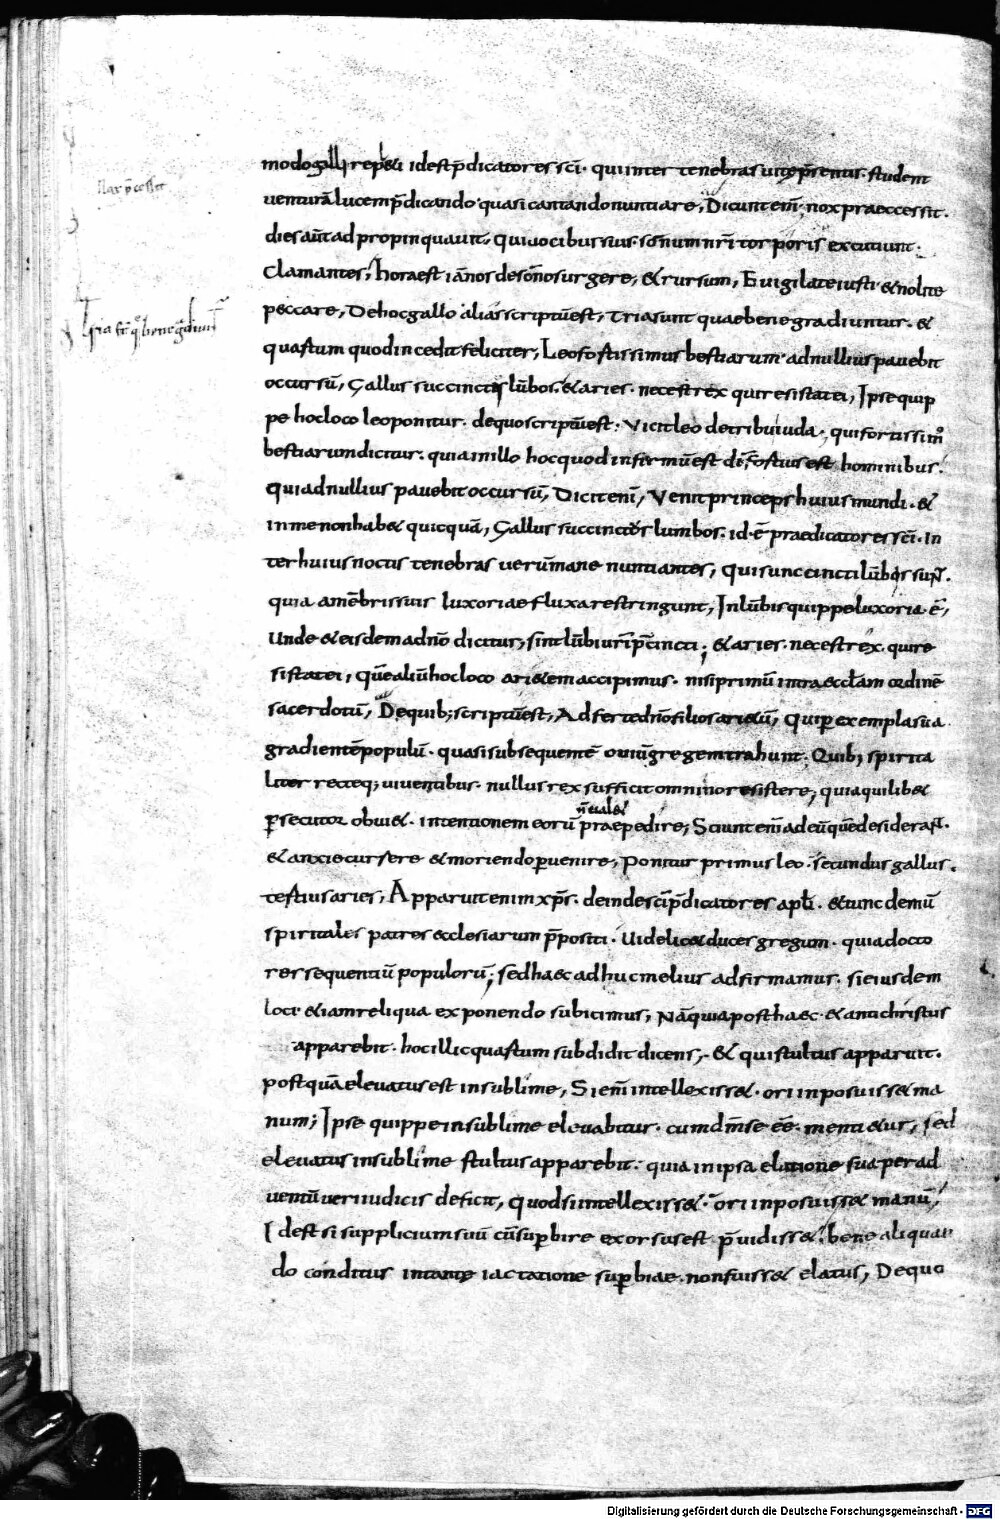 Nox p̄cessit
modo galli rep̄&i idest p̄dicatores sc̄i · qui inter tenebras uite p̄sentis · student
uenturā lucem p̄dicando quasi cantando nuntiare, Dicunt enī · nox praeccessit ·
dies aūt adpropinquauit, Qui uocibus suis somnum nr̄i torporis excutiunt ·
Clamantes, hora est iā nos de somno surgere, & rursum, Euigilate iusti & nolite
Tria st̄ q̄ bene gradiunt̄
peccare, De hoc gallo alias scriptū est, Tria sunt quae bene gradiuntur · &
quartum quod incedit feliciter, Leo fortissimus bestiarum ad nullius pauebit
occursū, Gallus succinctus lūbos · & aries · nec est rex qui resistat ei, Ipse quip
pe hoc loco leo ponitur · de quo scriptū est · Vicit leo de tribu iuda · qui fortissim͛
bestiarum dicitur · quia in illo hoc quod infirmū est dī · fortius est hominibus ·
Qui ad nullius pauebit occursū, Dicit enī, Venit princeps huius mundi · &
in me non hab& quicquā, Gallus succinctos lumbos · id ē praedicatores sc̄i · In
ter huius noctis tenebras uerū mane nuntiantes, Qui sunc cincti lūbos sun̄ ·
quia a mēbris suis luxoriae fluxa restringunt, In lūbis quippe luxoria ē,
Unde & eisdem a dnō dicitur, sint lūbi ur̄i p̄cincti ; & aries · nec est rex · qui re
sistat ei, Quē aliū hoc loco ari&em accipimus · nisi primū intra eccl̄am ordinē
sacerdotū, De quib; scriptū est, Adferte dnō filios ari&ū, Qui ꝑ exempla sua
gradientē populū · quasi subsequentē ouiū gregem trahunt · Quib; spirita
liter recteq; uiuentibus · nullus rex sufficit omnino resistere, quia quilib&
n̄ ual&
ꝑsecutor obui& · intentionem eorū praepedire, Sciunt enī ad eū quē desiderant ·
& anxie currere & moriendo ꝑuenire, Ponitur primus leo · secundus gallus ·
tertius aries, Apparuit enim xp̄s · deinde sc̄i p̄dicatores apl̄i · & tunc demū
spiritales patres ecclesiarum p̄positi · Uidelic& duces gregum · quia docto
res sequentiū populorū ; sed haec adhuc melius adfirmamus · si eiusdem
loci · & iam reliqua exponendo subicimus, Nā quia post haec · & antichristus
apparebit · hoc illic quartum subdidit dicens, · & qui stultus apparuit ·
postquā eleuatus est in sublime, Si enī intellexiss& · ori inposuiss& ma
num ; Ipse quippe in sublime eleuabitur · cum dm̄ se ēē · menti&ur, sed
eleuatus in sublime stultus apparebit · quia in ipsa elatione sua per ad
uentū ueri iudicis deficit, Quod si intellexiss& · ori inposuiss& manū,
Idest si supplicium suū cū suꝑbire exorsus est p̄uidiss& · bene aliquan
do conditus in tante iactatione suꝑbiae · non fuiss& elatus, De quo
Digitalisierung gefördert durch die Deutsche Forschungsgemeinschaft - DFG